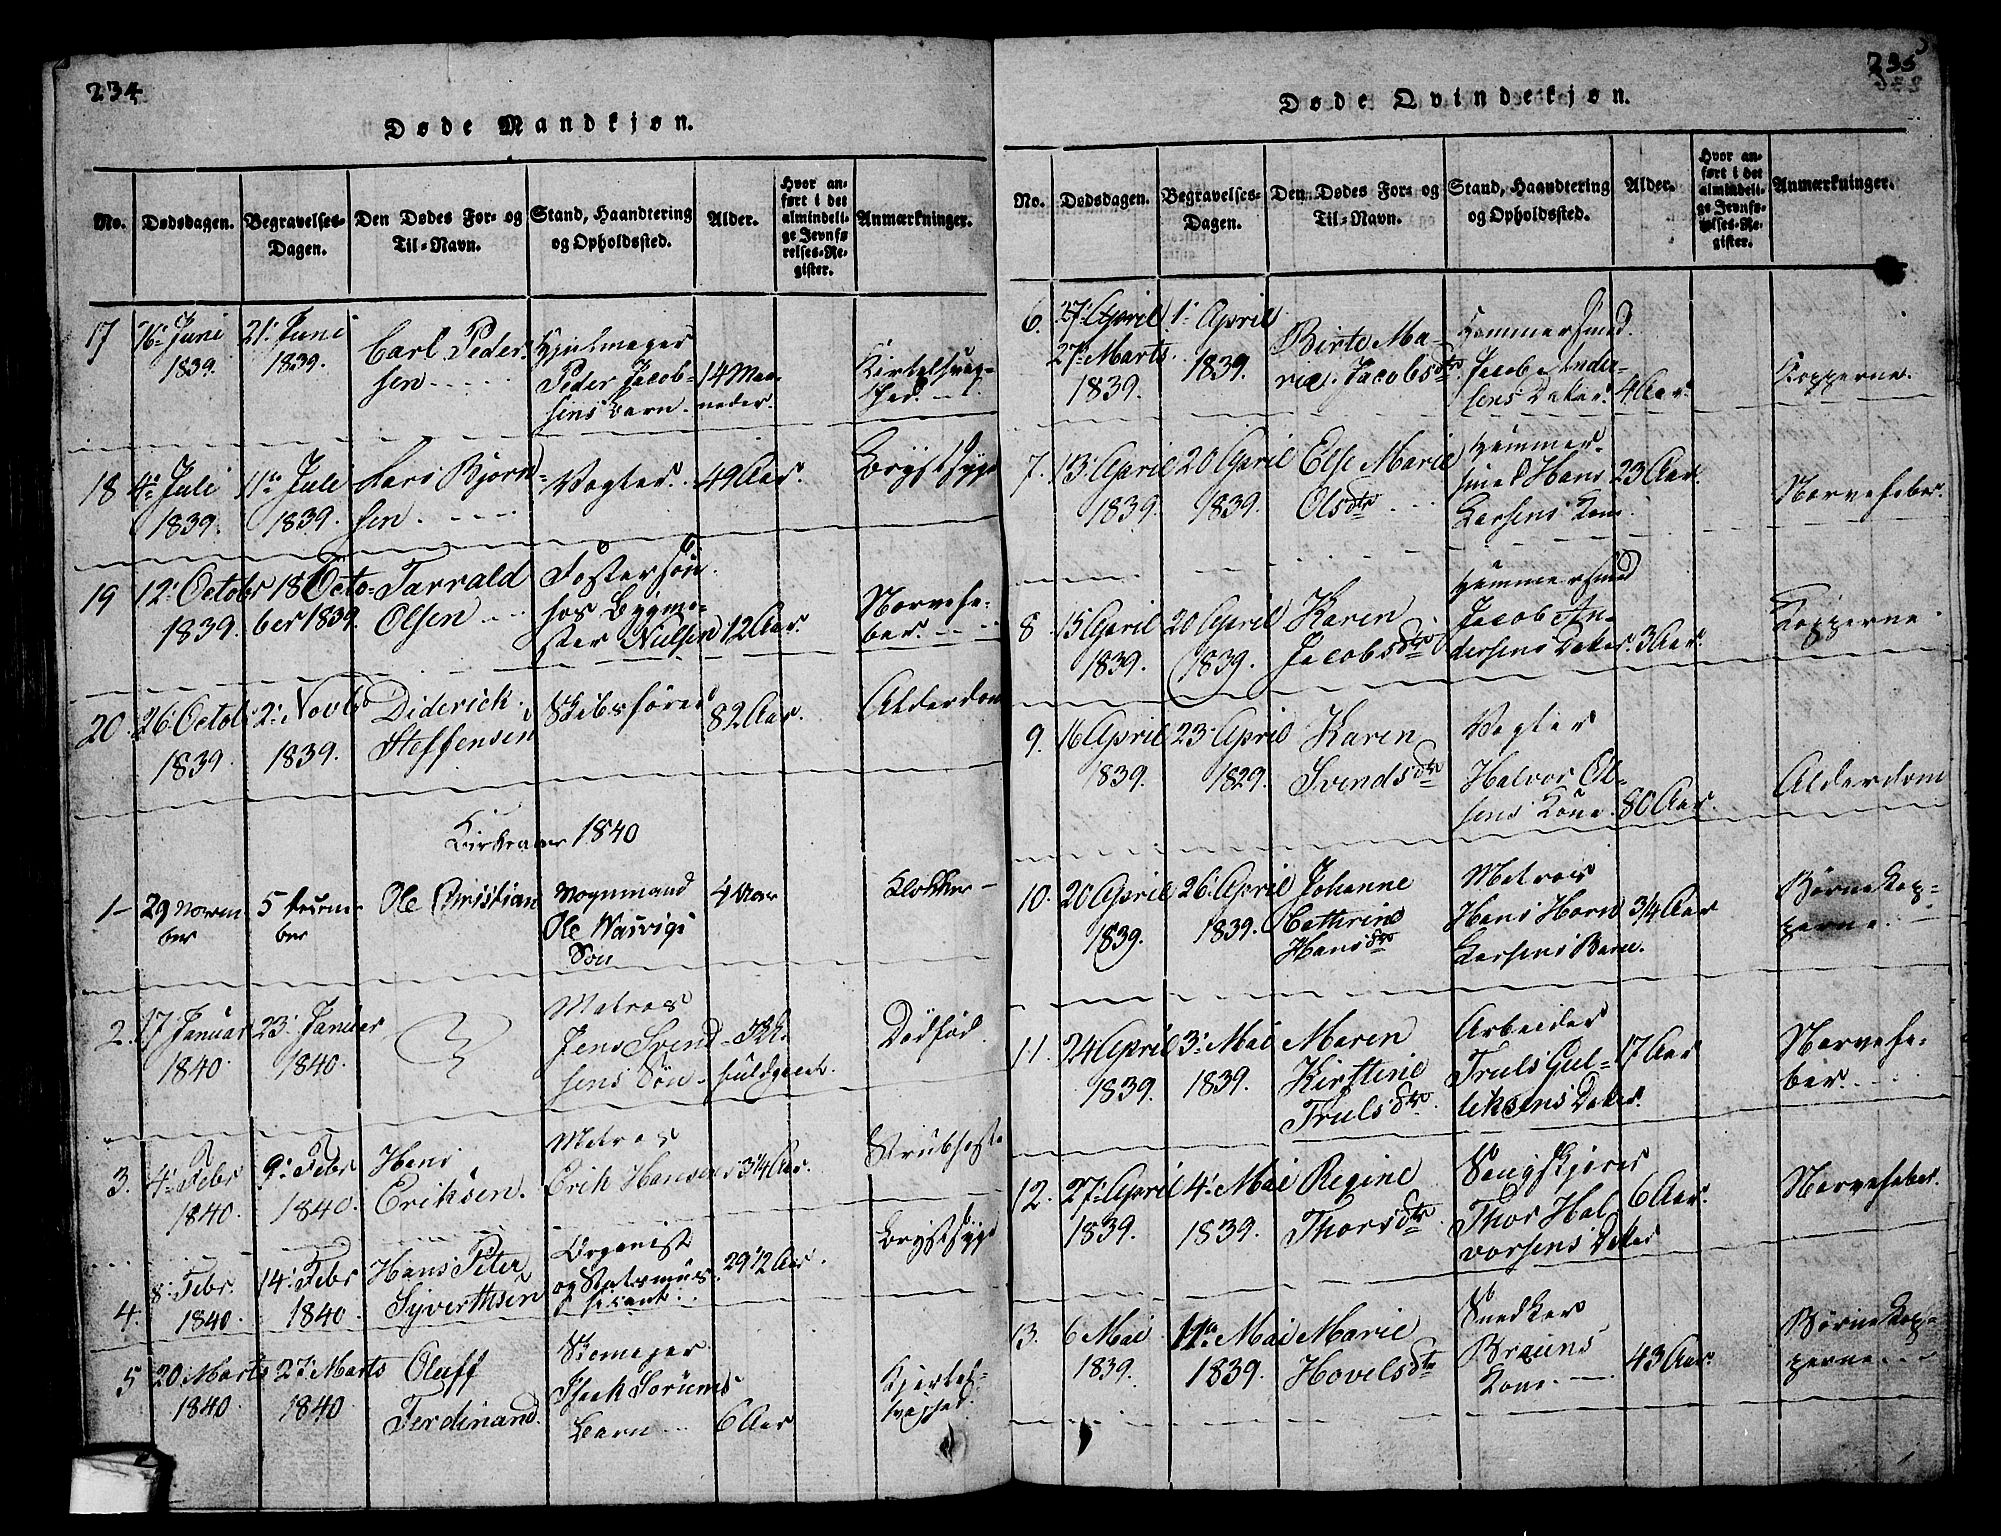 234
Døde Mandkjøn.
No.
Dødsdagen.
Begravelses-
Dagen.
Den Dødes For- og
Til-Navn.
Stand, Haandtering
og Opholdssted.
Alder.
Hvor an-
ført i det
almindeli-
ge Jevnfø-
relses-Re-
gister.
Anmærkninger.
17
16 Juni
1839.
21. Juni
1839.
Carl Peder-
sen
Hjulmager
Peder Jacob-
sens Barn.
14 Maa-
neder.
18
4 Juli
1839.
11 Juli
1839.
Lars Bjørn-
sen.
Vogter.
49 Aar.
Brystsyge
19
12. Octobr
1839.
18 Octo-
ber 1839.
Tarrald
Olsen
Fostersøn
hos Bygme-
ster Nielsen
12 Aar.
Nervefe-
ber.
20.
26 Octobr
1839.
2. Novbr
1839.
Diderick
Steffensen
Skibsfører
82 Aar.
Alderdom
Kirkeaar 1840
1
29 Novem
ber
5 Decem-
ber
Ole Christian
Vognmand
Ole Narvigs
Søn
4 Aar
2.
17 Januar
1840.
23. Januar
1840.
Matros
Jens Svend-
sens Søn
Ik.
fuldgaaet.
Dødfød.
3.
4. Febr
1840.
9. Febr
1840.
Hans
Eriksen.
Matros
Erik Hansen
3 1/4 Aar.
Strubhoste
4.
8. Febr.
1840.
14. Febr
1840.
Hans Peter
Syverthsen
Organist
og Statsmus-
sicant.
29 1/2 Aar.
Brystsyge
5
20. Marts
1840.
27. Marts
1840.
Oluff
Ferdinand.
Isach Sørums
Barn
6 Aar
235
Døde Qvindekjøn.
No.
Dødsdagen.
Begravelses-
Dagen.
Den Dødes For- og
Til-Navn.
Stand, Haandtering
og Opholdssted.
Alder.
Hvor an-
ført i det
almindeli-
ge Jevnfø-
relses-Re-
gister.
Anmærkninger.
6.
27. April
27. Marts
1839.
1. April
1839.
Birte Ma-
rie Jacobsdtr
Hammersmed
Jacob Ander-
sens Datter.
4 Aar.
Kopperne.
7.
13. April
1839.
20 April
1839.
Else Marie
Olsdtr
Hammer-
smed Hans
Larsens Kone.
23 Aar.
Nervefeber.
8
15 April
1839.
20 April
1839.
Karen
Jacobsdtr
Hammersmed
Jacob An-
dersens Datter.
3 Aar.
Kopperne
9.
16 April
1839.
23. April
1829.
Karen
Svendsdtr
Vogter
Halvor Ol-
sens Kone.
80 Aar.
Alderdom
10.
20 April
1839.
26. April
1839.
Johanne
Cathrine
Hansdtr
Matros
Hans Horn
Larsens Barn.
3/4 Aar
Børnekop-
perne.
11.
24 April
1839.
3. Mai
1839.
Maren
Kirstine
Trulsdtr
Arbeider
Truls Gul-
liksens Datter.
17 Aar
Nervefe-
ber.
12.
27. April
1839.
4. Mai
1839.
Regine
Thorsdtr
Saugskjører
Thor Hal
vorsens Datter
6 Aar.
Nervefeber.
13.
6 Mai
1839.
11 Mai
1839.
Marie
Hovelsdtr
Snedker
Brauns
Kone.
43 Aar.
Børnekop-
perne.